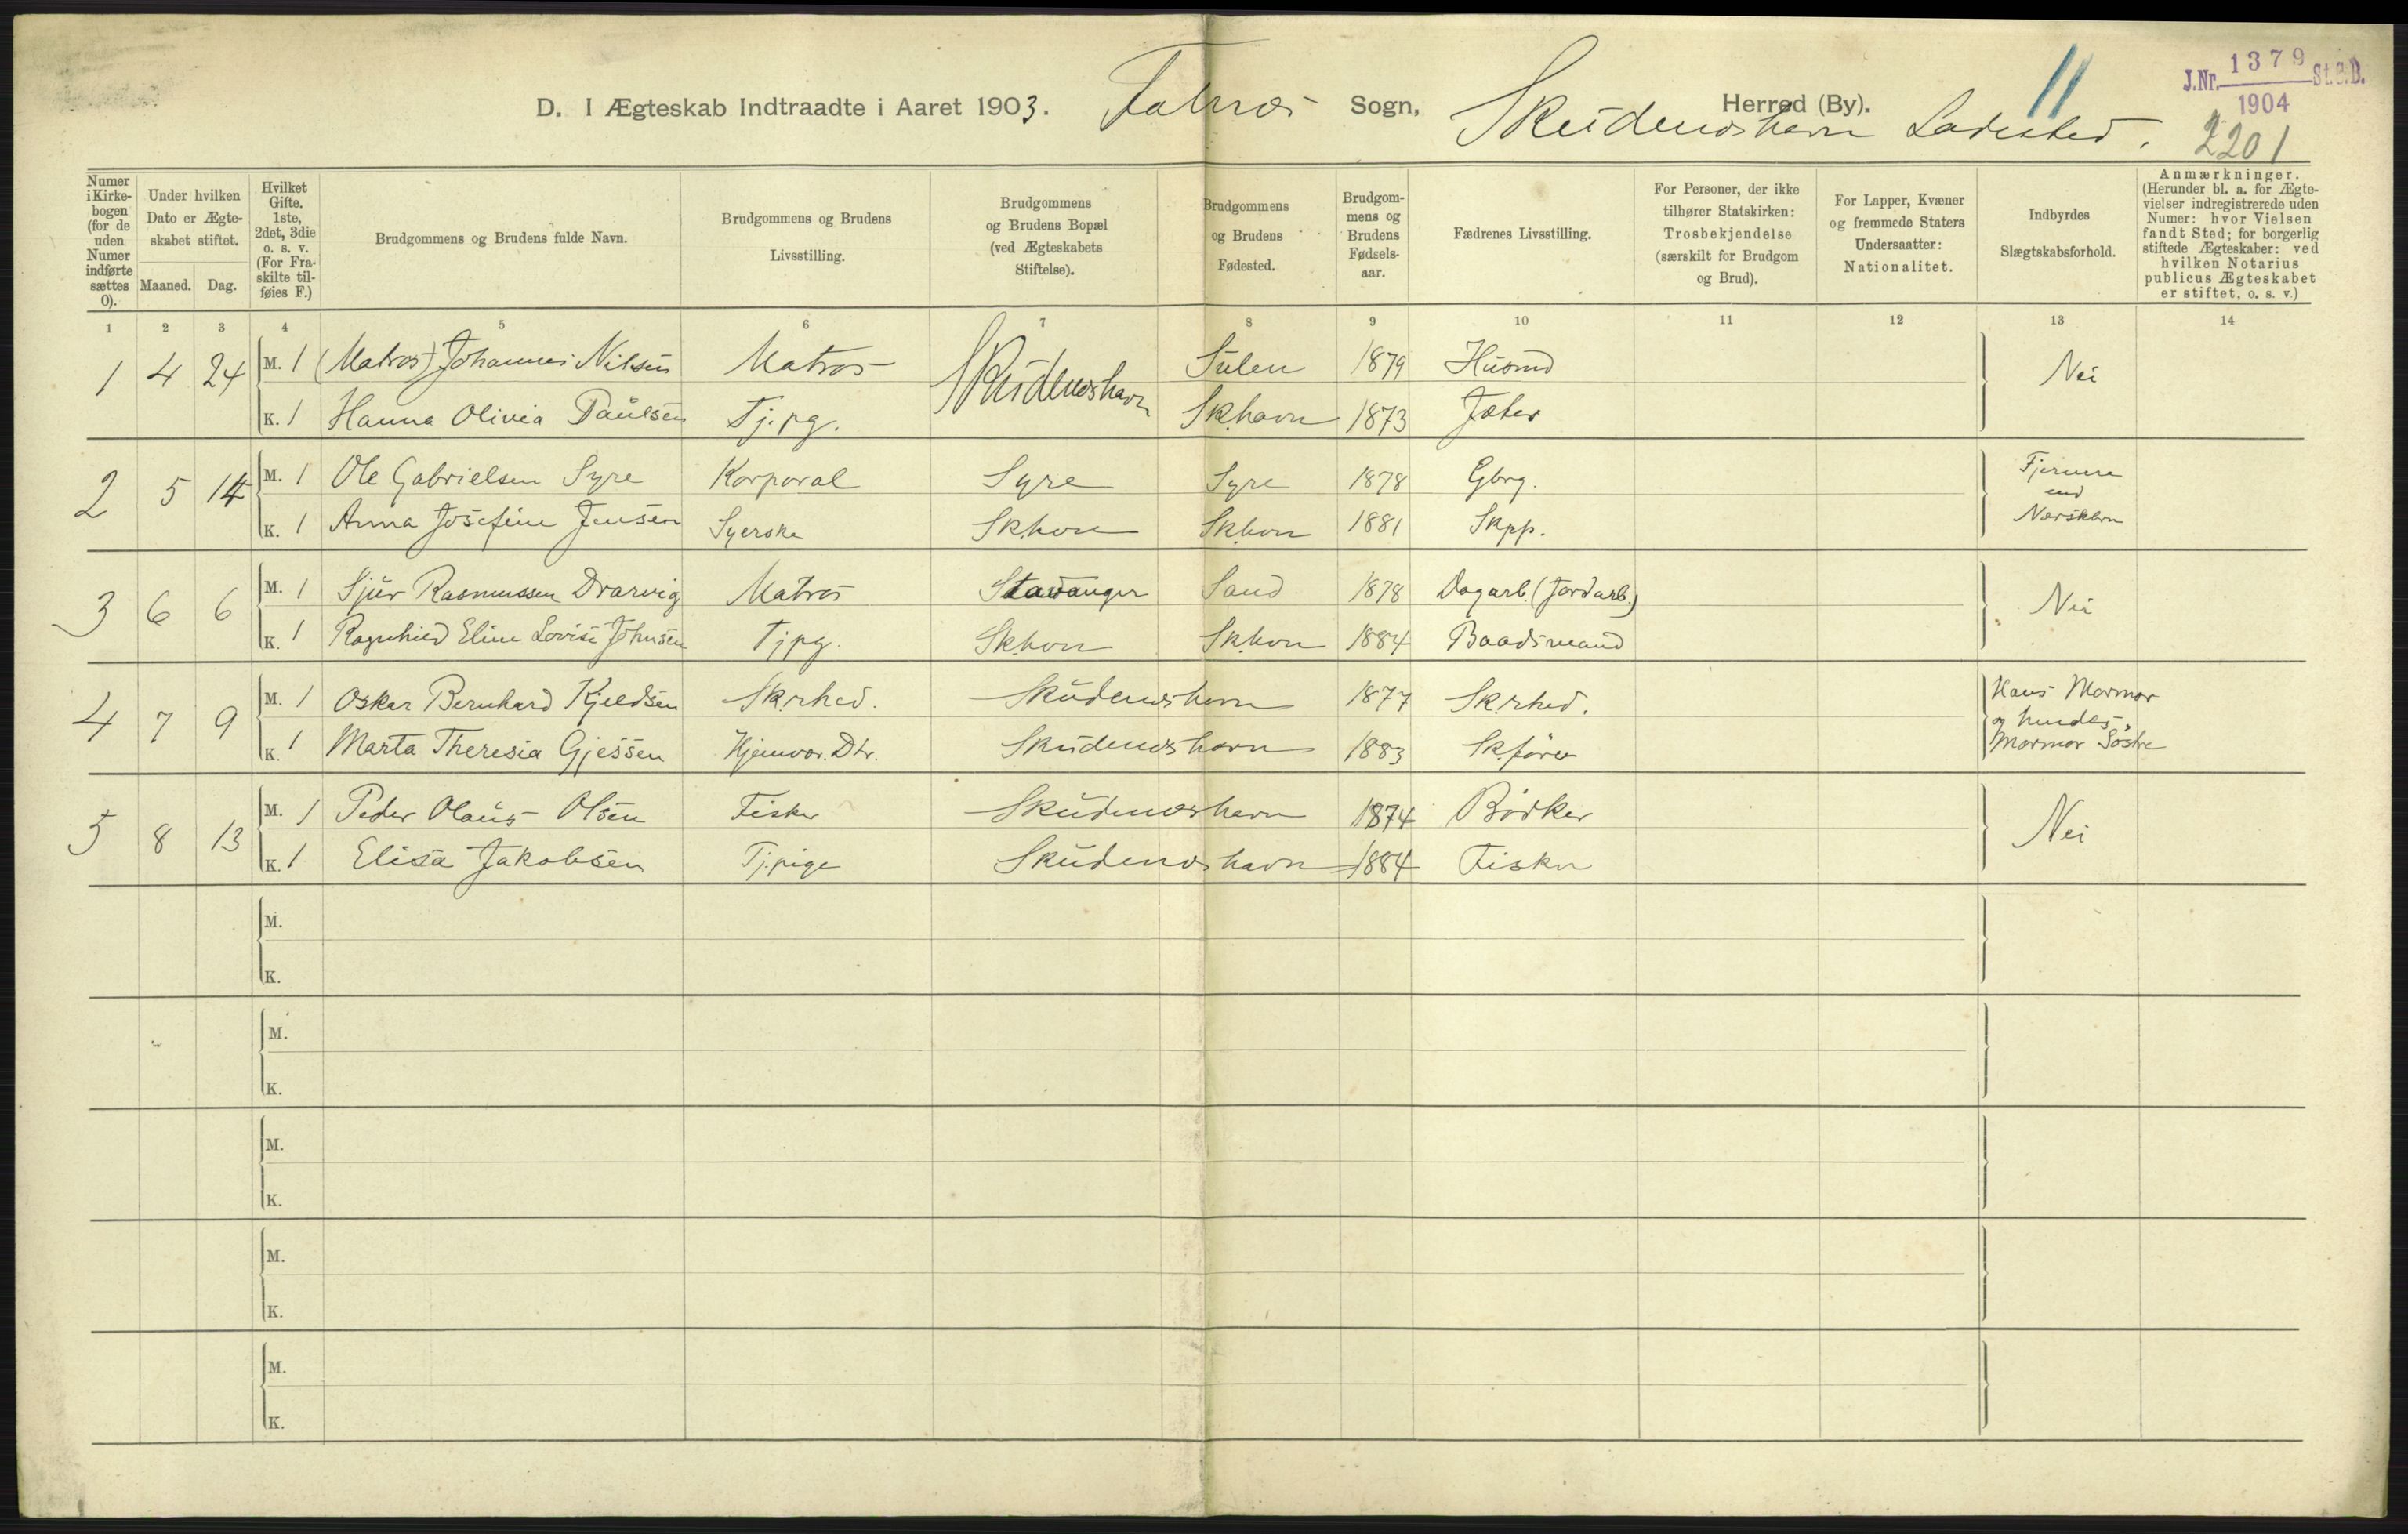 D. I Ægteskab Indtraadte i Aaret 1903. Falnæs Sogn, Skudeneshavn Ladested. Herred (By).
11
J.Nr. 1379 St.C.B.
1904
2201
Numer i Kirkebogen (for de uden Numer indførte sættes 0).
Under hvilken Dato er Ægteskabet stiftet.
Maaned. Dag.
Hvilket Gifte. 1ste, 2det, 3die o. s. v. (For Fraskilte tilføies F.)
Brudgommens og Brudens fulde Navn.
Brudgommens og Brudens Livsstilling.
Brudgommens og Brudens Bopæl (ved Ægteskabets Stiftelse).
Brudgommens og Brudens Fødested.
Brudgommens og Brudens Fødselsaar.
Fædrenes Livsstilling.
For Personer, der ikke tilhører Statskirken: Trosbekjendelse (særskilt for Brudgom og Brud).
For Lapper, Kvæner og fremmede Staters Undersaatter: Nationalitet.
Indbyrdes Slægtskabsforhold.
Anmærkninger. (Herunder bl. a. for Ægtevielser indregistrerede uden Numer: hvor Vielsen fandt Sted; for borgerlig stiftede Ægteskaber: ved hvilken Notarius publicus Ægteskabet er stiftet, o. s. v.)
1 2 3 4 5 6 7 8 9 10 11 12 13 14
1 4 24 M. 1 (Matros) Johannes Nilsen Matros Skudeneshavn Sulen 1879 Husmd Nei
K. 1 Hanna Olivia Paulsen Tj.pg. Sk.havn 1873
2 5 14 M. 1 Ole Gabrielsen Syre Korporal Syre Syre 1878 Gbrg. Fjernere end Næsskbrn
K. 1 Anna Josefine Jensen Syerske Skhvn Skhvn 1881 Skpp.
3 6 6 M. 1 Sjur Rasmussen Drarvig Matros Stavanger Sand 1878 Dagarb. (Jordarb.) Nei
K. 1 Ragnhild Eline Lovise Johnsen Tjpg. Skhvn Skhvn 1884 Baadsmand
4 7 9 M. 1 Oskar Bernhard Kjeldsen Sk.rhed. Skudeneshavn 1877 Sk.rhed. Hans Mormor og hendes Mormor Søstre
K. 1 Marta Theresia Gjessen Hjemvær. Dtr. Skudeneshavn 1883 Sk.fører
5 8 13 M. 1 Peder Olaus Olsen Fisker Skudeneshavn 1874 Bødker Nei
K. 1 Elisa Jakobsen Tj.pige Skudeneshavn 1884 Fisker
M.
K.
M.
K.
M.
K.
M.
K.
M.
K.